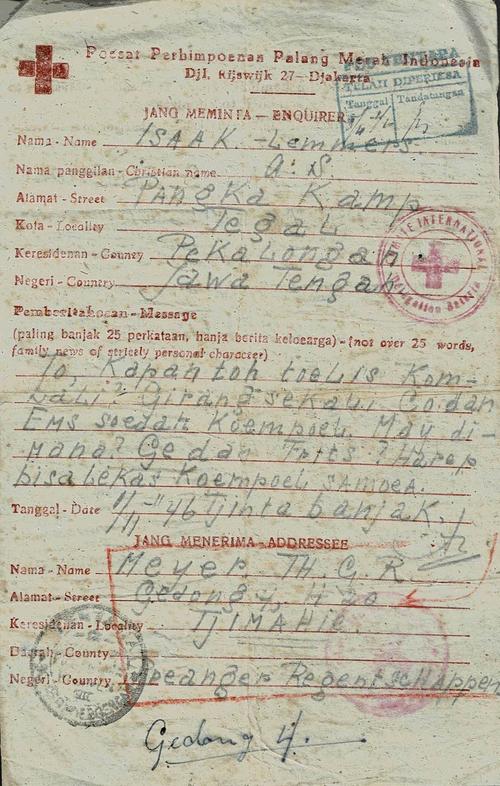 Poesat Perhimpoenan Palang Merah Indonesia
Djl. Rijswijk 27 - Djakarta
POS TENTARA
TELAH DIPERIKSA
Tanggal Tandatangan
JANG MEMINTA - ENQUIRER
Nama - Name ISAAK - Lemmers
Nama panggilan - Christian name A. S.
Alamat - Street PANgKa Kamp
Kota - Locality TegaL
Keresidenan - County PeKaLongan
Negeri - Country Jawa Tengah
Pemberitahoean - Message
(paling banjak 25 perkataan, hanja berita keloearga) - (not over 25 words,
family news of strictly personal character)
To, Kapan toh toeLis Kom-
baLi? Girang sekaLi, Co dan
Ems soedah Koempoel. May di-
mana? Ge dan Frits? Harep
bisa Lekas Koempoel samoea.
Tanggal - Date 46 Tjinta banjak.
JANG MENERIMA - ADDRESSEE
Nama - Name Meyer TH. G. R.
Alamat - Street Gedong
Keresidenan - Locality TJIMAHIE.
Daerah - County
Negeri - Country Preanger Regentschappen
INTERNATIONAL
Gedong 4.